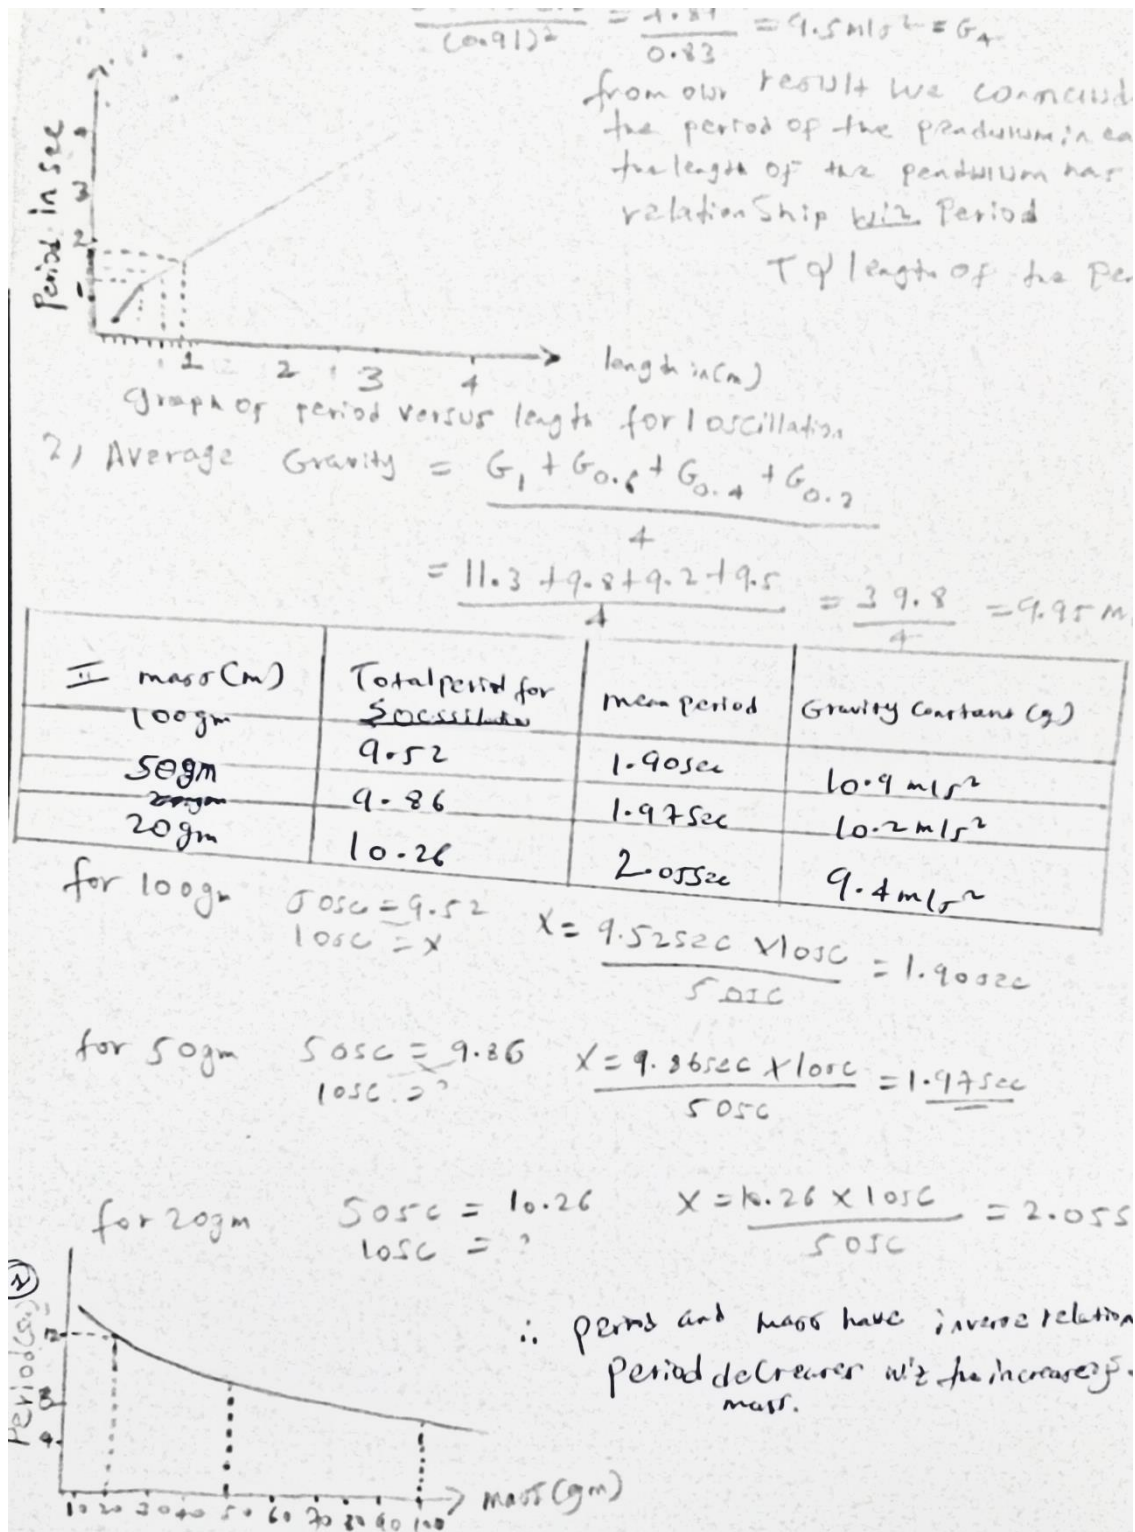 (0.91)² 0.83 = 9.5 m/s² = G₄
from our result we conncud
the period of the pendulum in ea
the length of the pendulum has
relationShip wiz Period
T α length of the per
Period in sec
4
3
2
1
1 2 3 4
length in (m)
graph of period versus length for 1 oscillation
2) Average Gravity = G₁ + G₀.₆ + G₀.₄ + G₀.₂
4
= 11.3 + 9.8 + 9.2 + 9.5 = 39.8 = 9.95 m
4 4
II mass (m) Total period for mean period Gravity Constant (g)
5 ocssilation
100gm 9.52 1.90sec 10.9 m/s²
50gm 9.86 1.97sec 10.2 m/s²
20gm 10.26 2.05sec 9.4 m/s²
for 100gm 5 osc = 9.52 X = 9.52sec X 1osc = 1.90sec
1osc = x 5 osc
for 50gm 5 osc = 9.86 X = 9.86sec X 1osc = 1.97sec
1osc = ? 5 osc
for 20gm 5 osc = 10.26 X = 10.26 X 1osc = 2.05s
1osc = ? 5 osc
Period (sec)
12
8
4
10 20 30 40 50 60 70 80 90 100
mass (gm)
∴ period and mass have inverse relation
period decreases wiz the increase of
mass.